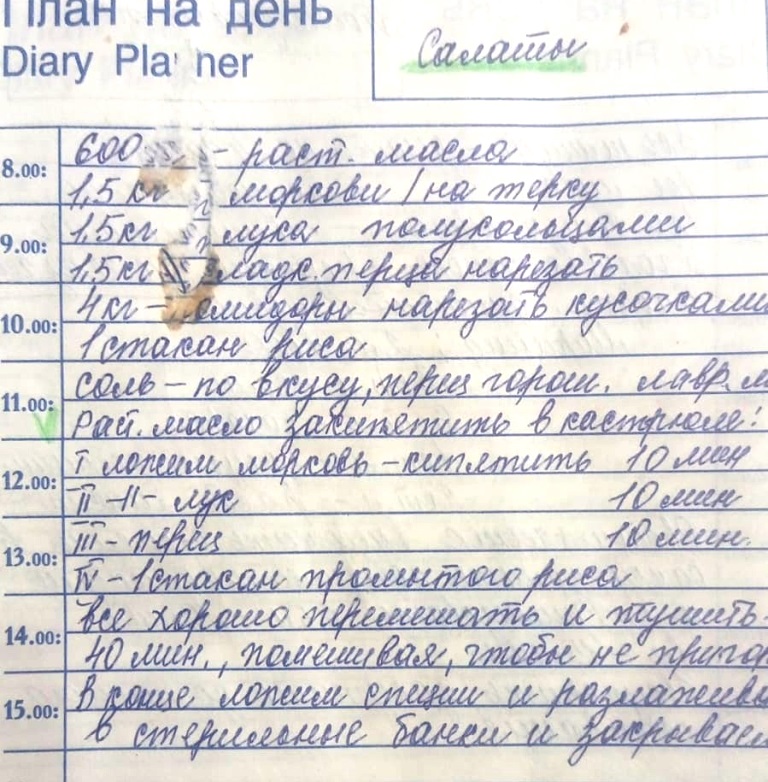 План на день
Diary Pla ner
Салаты
600 - раст. масла
8.00:
1,5 кг моркови / на терку
1,5 кг лука полукольцами
9.00:
1,5 кг ладк. перца нарезать
4 кг - омидоры нарезать кусочками
10.00:
1 стакан риса
соль - по вкусу, перец горош. лавр. л
11.00:
Раст. масло закипятить в кастрюле:
I ложим морковь - кипятить 10 мин
12.00:
II -||- лук 10 мин
III - перец 10 мин.
13.00:
IV - 1 стакан промытого риса
все хорошо перемешать и тушить
14.00:
40 мин., помешивая, чтобы не пригор
В конце ложим специи и разлажива
15.00:
в стерильные банки и закрываем